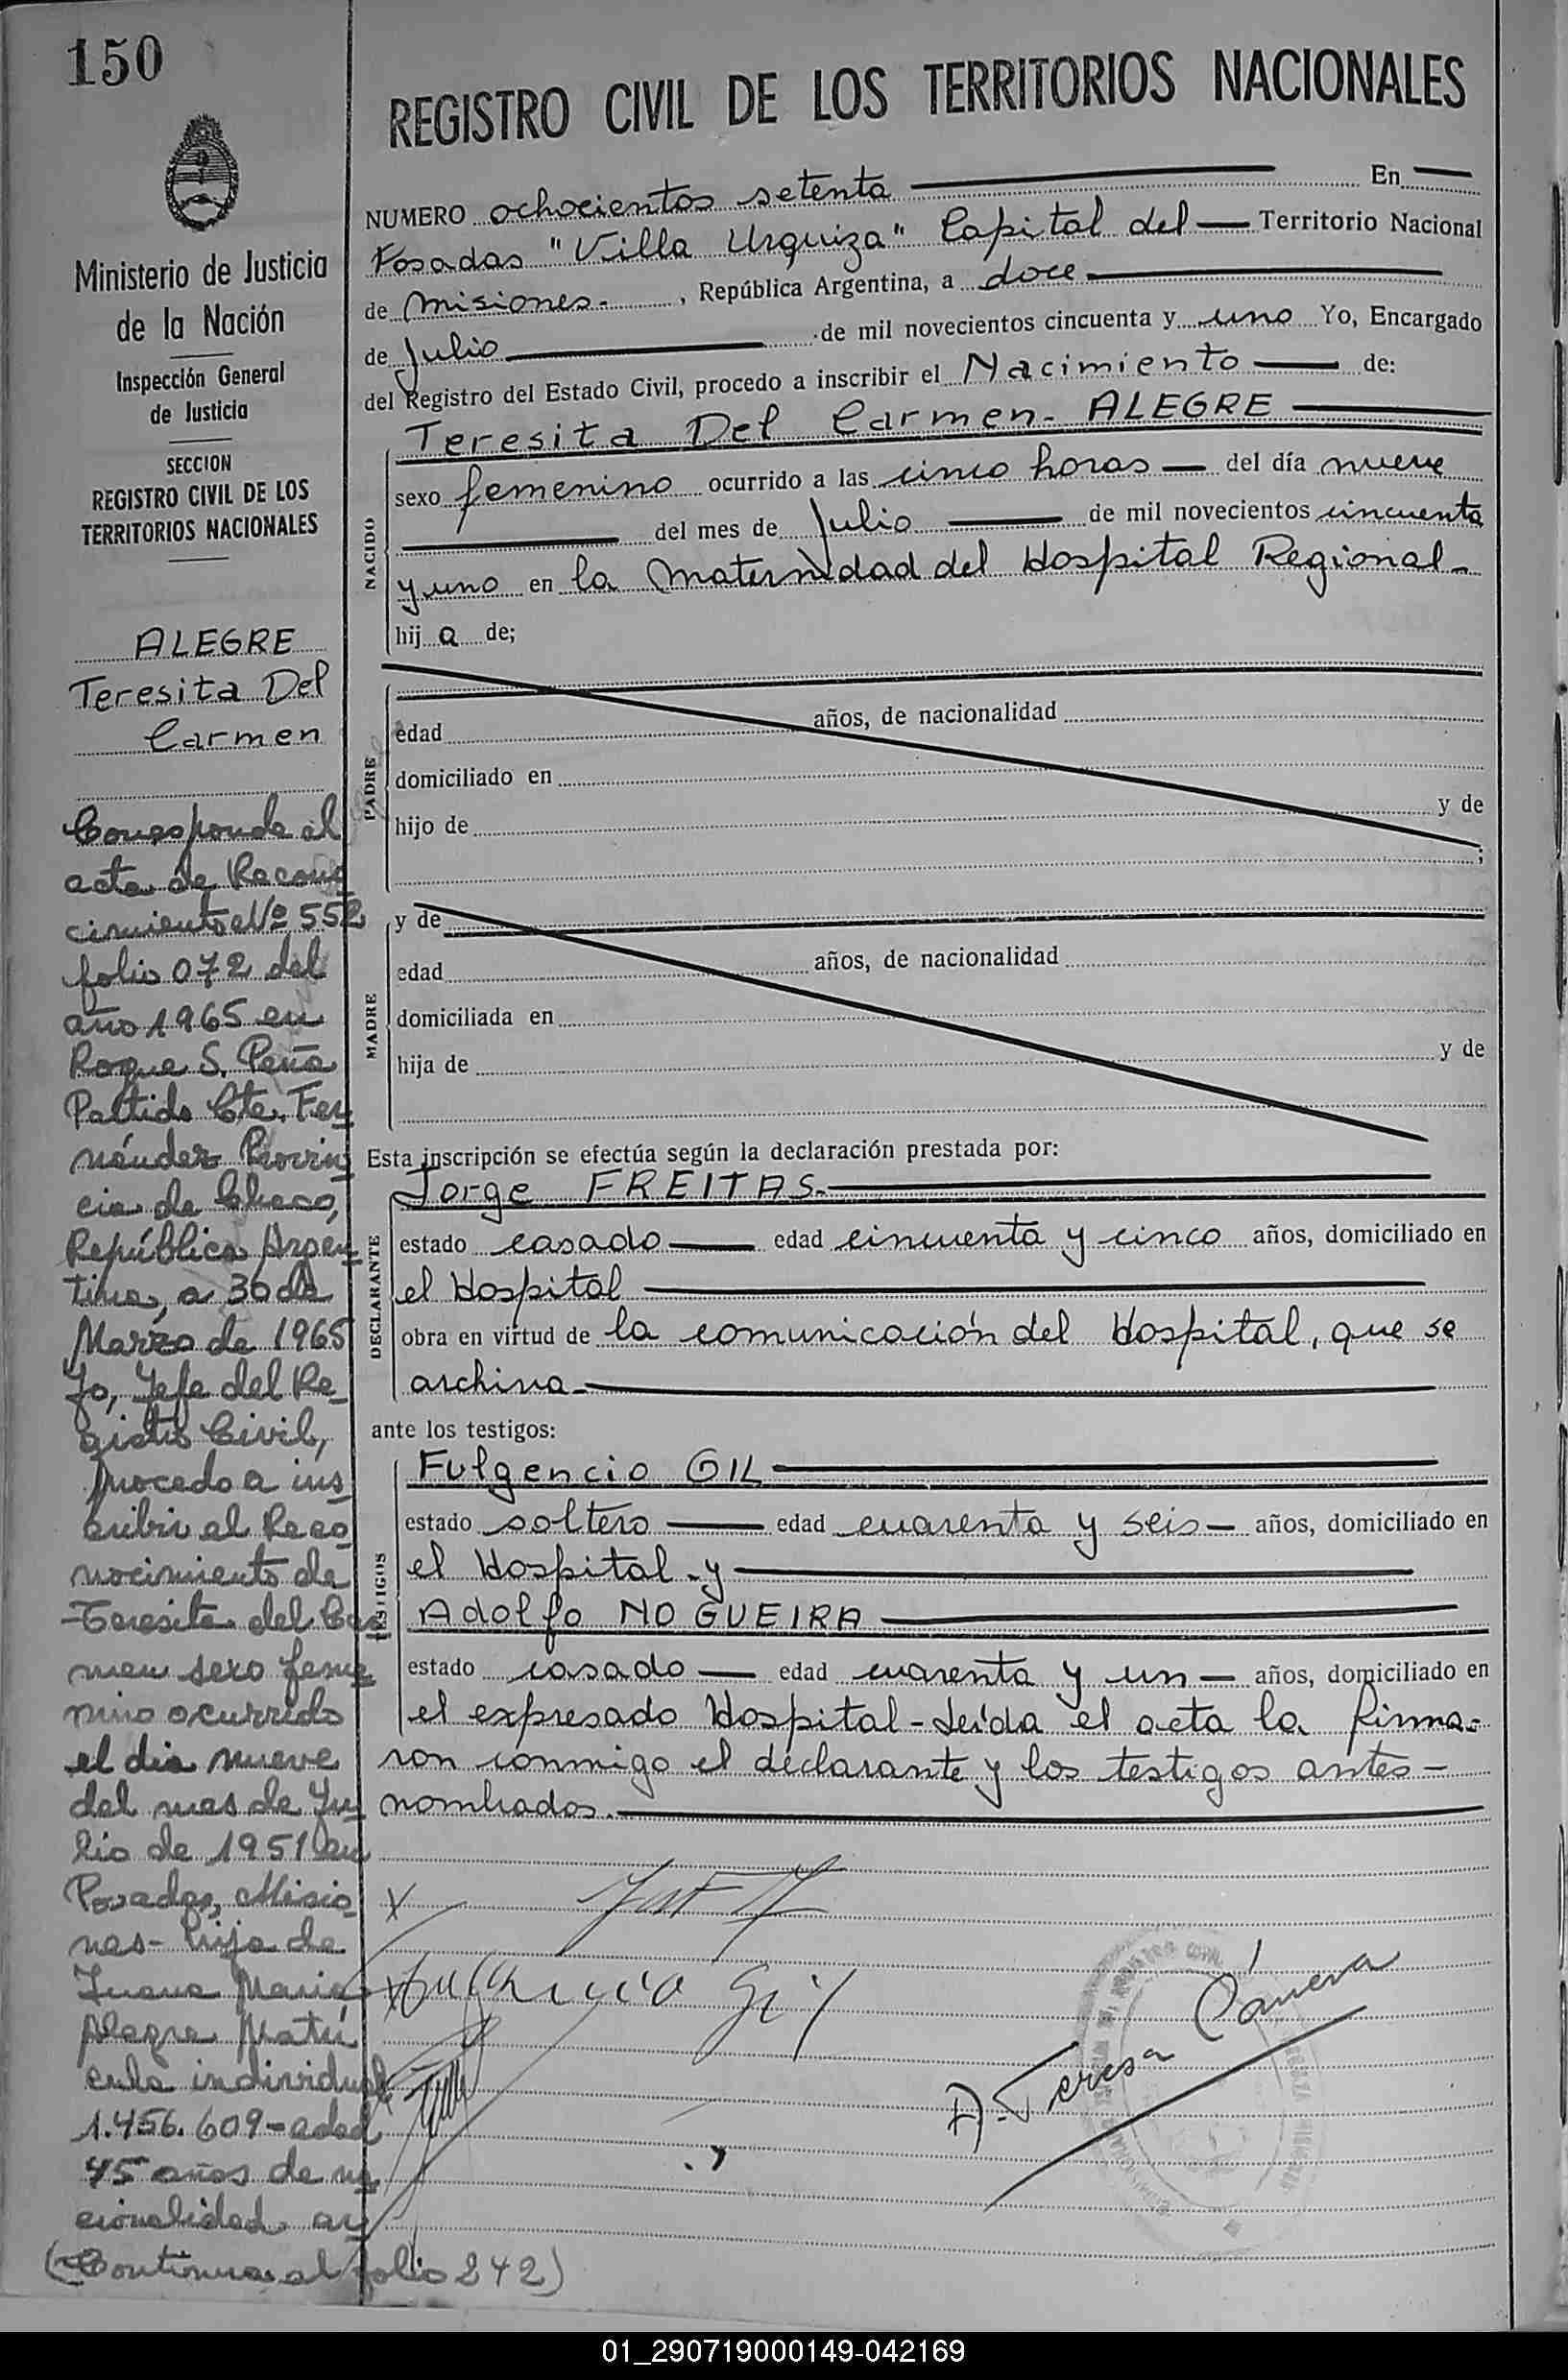 150
Ministerio de Justicia
de la Nación
Inspección General
de Justicia
SECCION
REGISTRO CIVIL DE LOS
TERRITORIOS NACIONALES
ALEGRE
Teresita Del
Carmen
Corresponde al
acta de Recono
cimiento Nº 552
folio 072 del
año 1965 en
Roque S. Peña
Partido Cte. Fer
nández Provin
cia de Chaco,
República Argen
tina, a 30 de
Marzo de 1965
Yo, Jefe del Re
gistro Civil,
procedo a ins
cribir el Reco
nocimiento de
Teresita del Car
men sexo feme
nino ocurrido
el dia nueve
del mes de Ju
lio de 1951 en
Posadas, Misio
nes- hija de
Juana Maria
Alegre Matrí
cula individual
1.456.609- edad
45 años de na
cionalidad ar
(Continua al folio 242)
REGISTRO CIVIL DE LOS TERRITORIOS NACIONALES
NUMERO ochocientos setenta En
Posadas "Villa Urquiza" Capital del Territorio Nacional
de Misiones.- , República Argentina, a doce
de Julio de mil novecientos cincuenta y uno Yo, Encargado
del Registro del Estado Civil, procedo a inscribir el Nacimiento de:
Teresita Del Carmen- ALEGRE
NACIDO
sexo femenino ocurrido a las cinco horas del día nueve
del mes de Julio de mil novecientos cincuenta
y uno en la Maternidad del Hospital Regional-
hij a de;
PADRE
edad años, de nacionalidad
domiciliado en
hijo de y de
;
MADRE
y de
edad años, de nacionalidad
domiciliada en
hija de y de
Esta inscripción se efectúa según la declaración prestada por:
DECLARANTE
Jorge FREITAS.-
estado casado edad cincuenta y cinco años, domiciliado en
el Hospital
obra en virtud de la comunicación del Hospital, que se
archiva-
ante los testigos:
TESTIGOS
Fulgencio GIL
estado soltero edad cuarenta y seis años, domiciliado en
el Hospital.-y
Adolfo NOGUEIRA
estado casado edad cuarenta y un años, domiciliado en
el expresado Hospital-Leída el acta la firma-
ron conmigo el declarante y los testigos antes-
nombrados.
X
X Fulgencio Gil
A. Teresa Cáneva
01_290719000149-042169